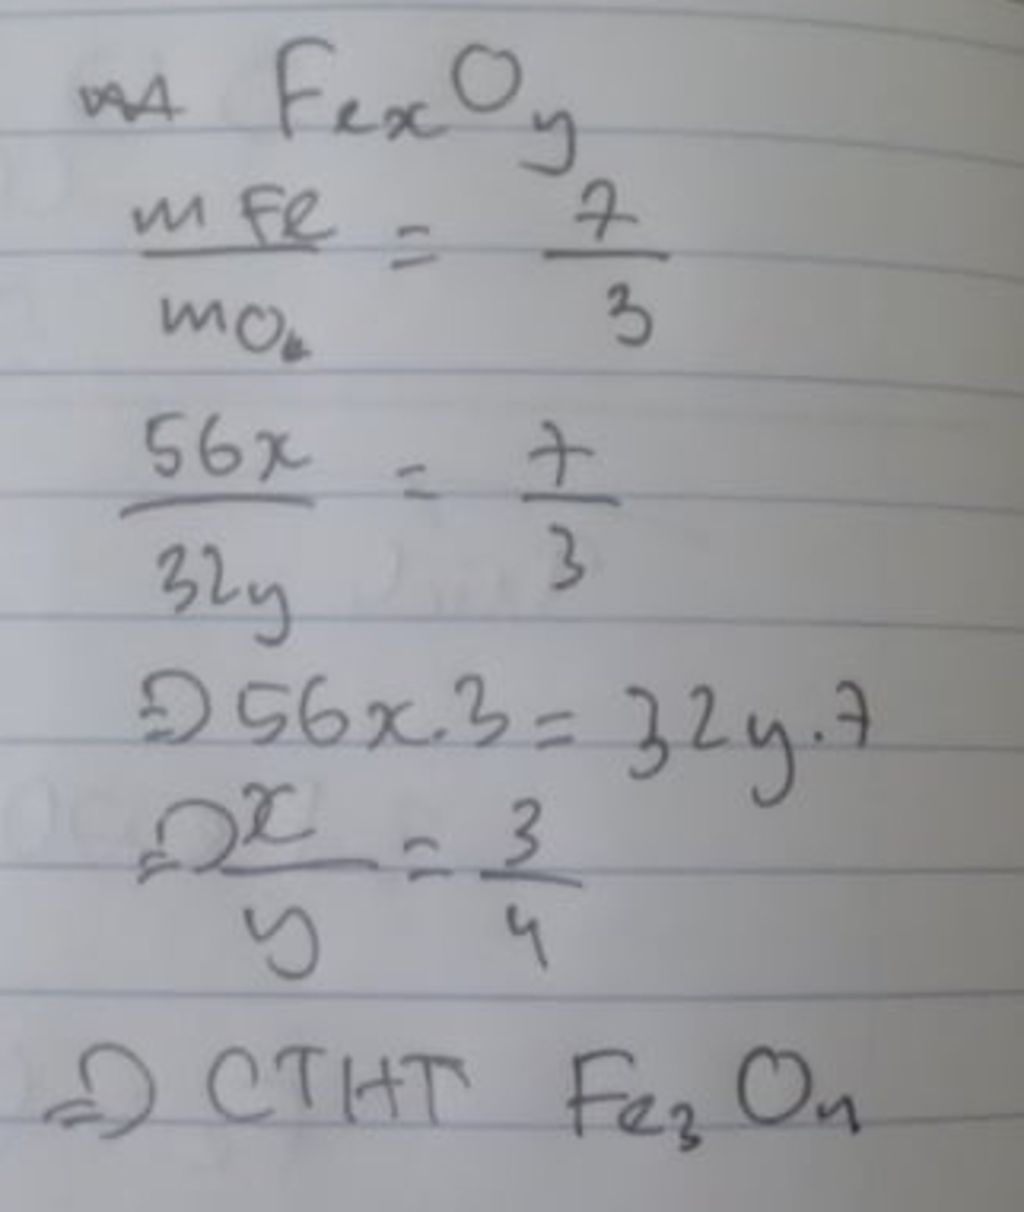 FexOy
mFe/mO = 7/3
56x/32y = 7/3
⇒ 56x.3 = 32y.7
⇒ x/y = 3/4
⇒ CTHT Fe3O4